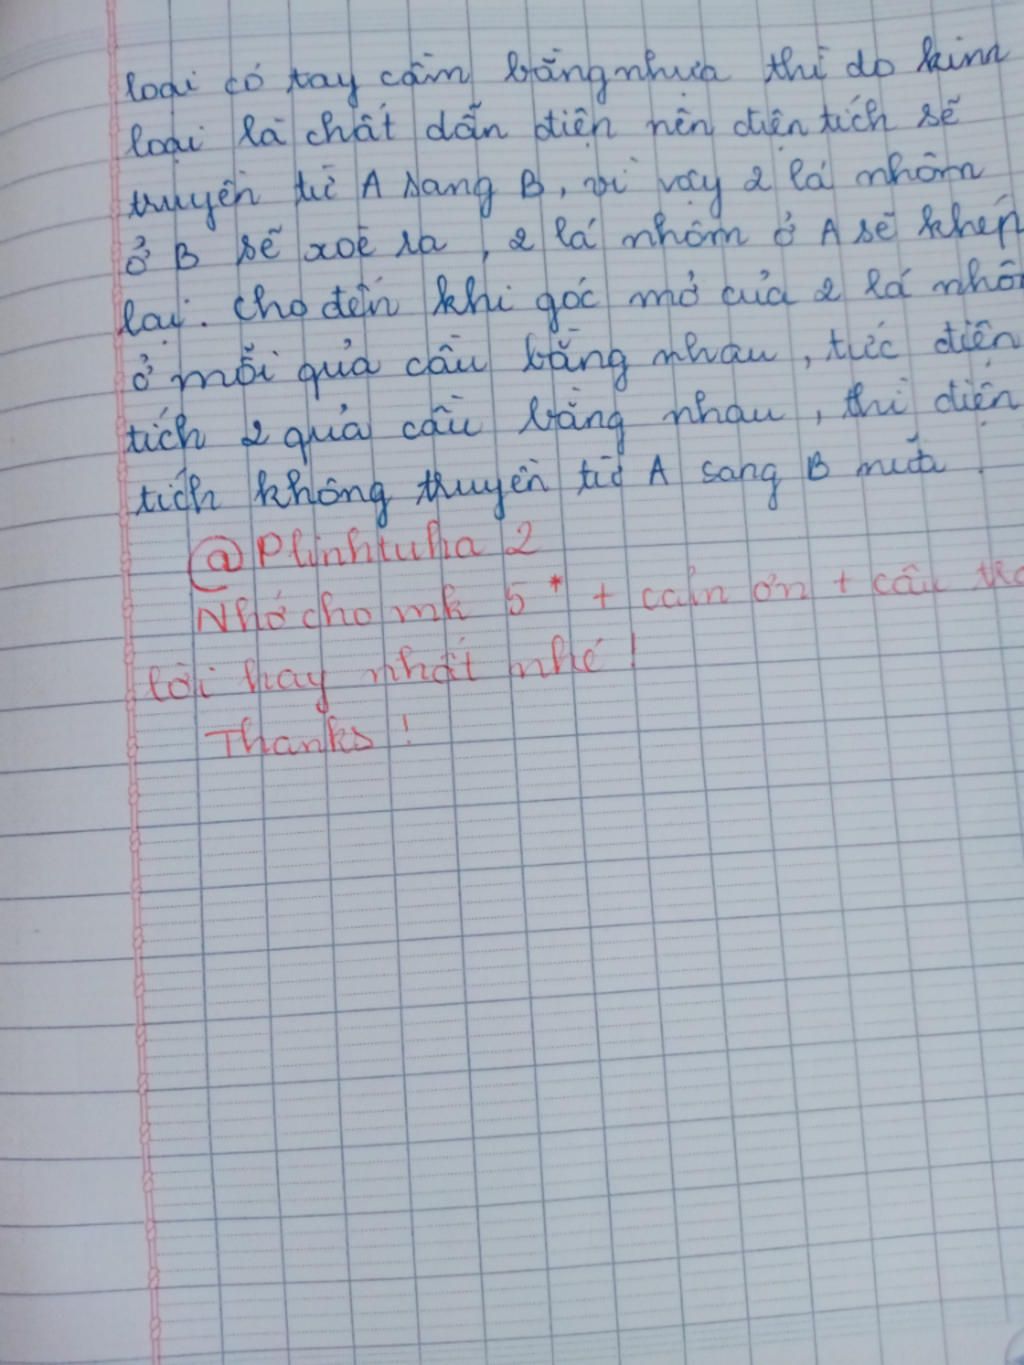 loại có tay cầm bằng nhựa thì do kim
loại là chất dẫn điện nên điện tích sẽ
truyền từ A sang B, vì vậy 2 lá nhôm
ở B sẽ xoè ra, 2 lá nhôm ở A sẽ khép
lại. Cho đến khi góc mở của 2 lá nhô
ở mỗi quả cầu bằng nhau, tức điện
tích 2 quả cầu bằng nhau, thì điện
tích không truyền từ A sang B nữa.
@Plinhtuha 2
Nhớ cho mk 5* + cảm ơn + câu
lời hay nhất nhé!
Thanks!